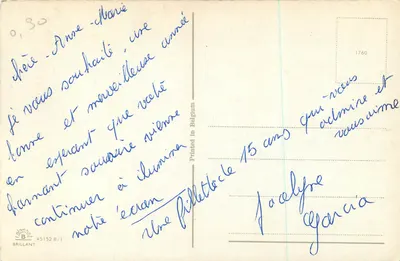 0,50
Chère Anne-Marie
Je vous souhaite, une
bonne et merveilleuse année
en espérant que votre
charmant sourire vienne
continuer à iluminer
notre écran
Une fillette de 15 ans qui vous
admire et
vous aime
Jocelyne
Garcia
Printed in Belgium